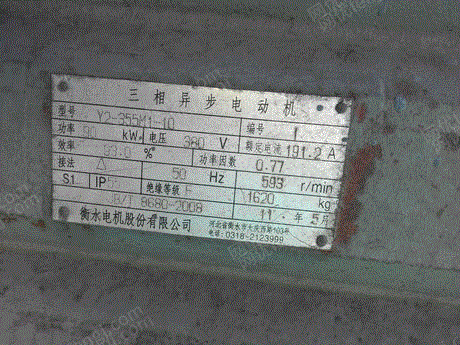 三相异步电动机
型号 Y2-355M1-10 编号 1
功率 90 kW 电压 380 V 额定电流 191.2 A
效率 93.0 % 功率因数 0.77
接法 △ 50 Hz 593 r/min
S1 IP 绝缘等级 F 1620 kg
JB/T 8680-2008 11 · 年 5 月
衡水电机股份有限公司 河北省衡水市大庆西路103号
电话:0318-2123999